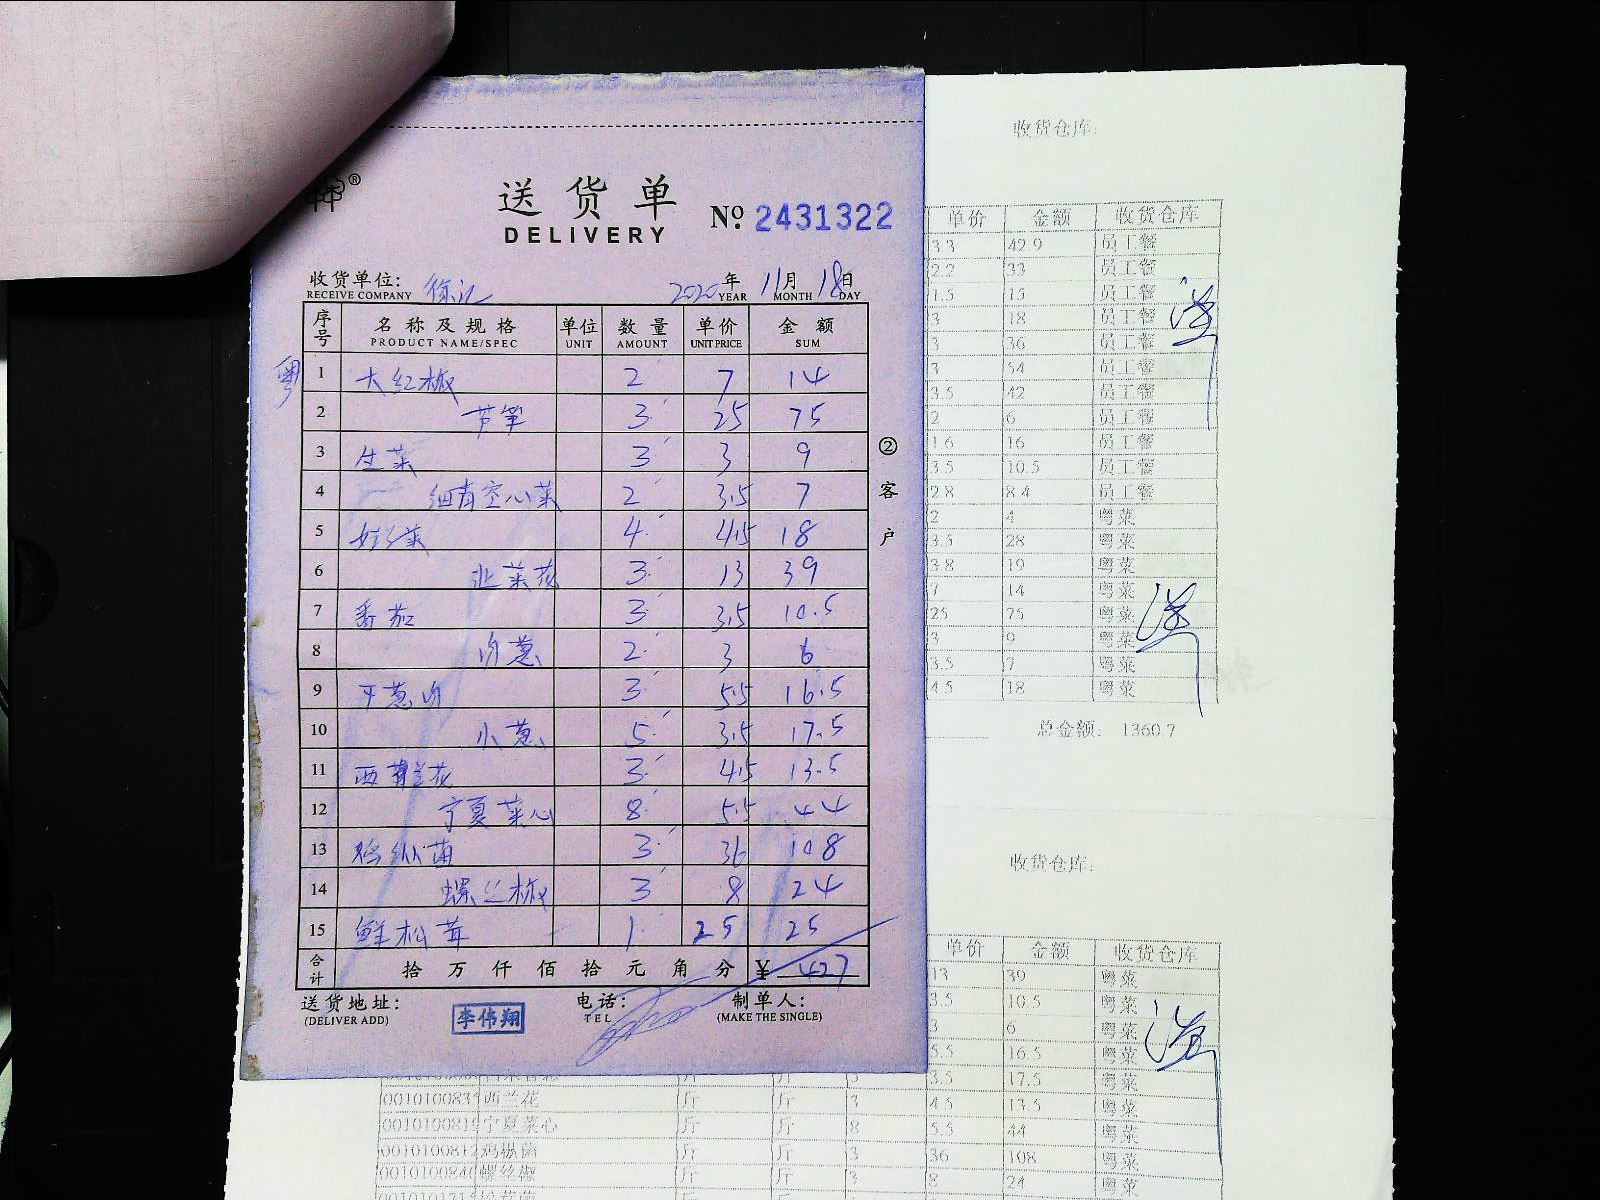 送货单
DELIVERY
№ 2431322
收货单位: 徐汇 2020年 11月 18日
RECEIVE COMPANY YEAR MONTH DAY
序号 名称及规格 单位 数量 单价 金额
PRODUCT NAME/SPEC UNIT AMOUNT UNIT PRICE SUM
粤
1 大红椒 2 7 14
2 芦笋 3 25 75
3 生菜 3 3 9
4 细有空心菜 2 3.5 7
5 娃菜 4 4.5 18
6 韭菜花 3 13 39
7 番茄 3 3.5 10.5
8 肉葱 2 3 6
9 干葱肉 3 5.5 16.5
10 小葱 5 3.5 17.5
11 西兰花 3 4.5 13.5
12 宁夏菜心 8 5.5 44
13 鸡枞菌 3 36 108
14 螺丝椒 3 8 24
15 鲜松茸 1 25 25
合计 拾万仟佰拾元角分 ¥ 427
送货地址: 李伟翔 电话: 制单人:
(DELIVER ADD) TEL (MAKE THE SINGLE)
②客户
收货仓库:
单价 金额 收货仓库
3.3 42.9 员工餐
2.2 33 员工餐
1.5 15 员工餐
3 18 员工餐
3 36 员工餐
3 54 员工餐
3.5 42 员工餐
2 6 员工餐
1.6 16 员工餐
3.5 10.5 员工餐
2.8 8.4 员工餐
2 4 粤菜
3.5 28 粤菜
3.8 19 粤菜
7 14 粤菜
25 75 粤菜
3 9 粤菜
3.5 7 粤菜
4.5 18 粤菜
总金额: 1360.7
收货仓库:
单价 金额 收货仓库
13 39 粤菜
3.5 10.5 粤菜
3 6 粤菜
5.5 16.5 粤菜
3.5 17.5 粤菜
西兰花 斤 斤 3 4.5 13.5 粤菜
宁夏菜心 斤 斤 8 5.5 44 粤菜
鸡枞菌 斤 斤 3 36 108 粤菜
螺丝椒 斤 斤 3 8 24 粤菜